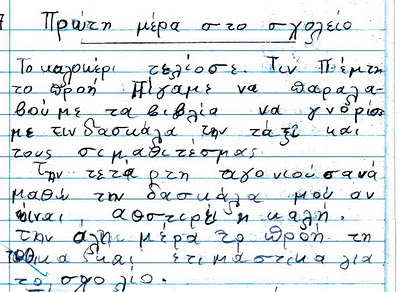 Πρώτη μέρα στο σχολείο
Το καλοκέρι τελίοσε. Τιν Πέμτη
το προή Πίγαμε να παραλα-
βούμε τα βιβλία να γνορίσο
με τιν δασκάλα την τάξι και
τους σιμαθιτέσμας
Την τετάρτη αγονιούσα νά
μαθω την δασκάλα μου αν
είναι αφστερή η καλή.
Την άλη μέρα το προή τη
και ετιμάστικα για
το σχολίο.